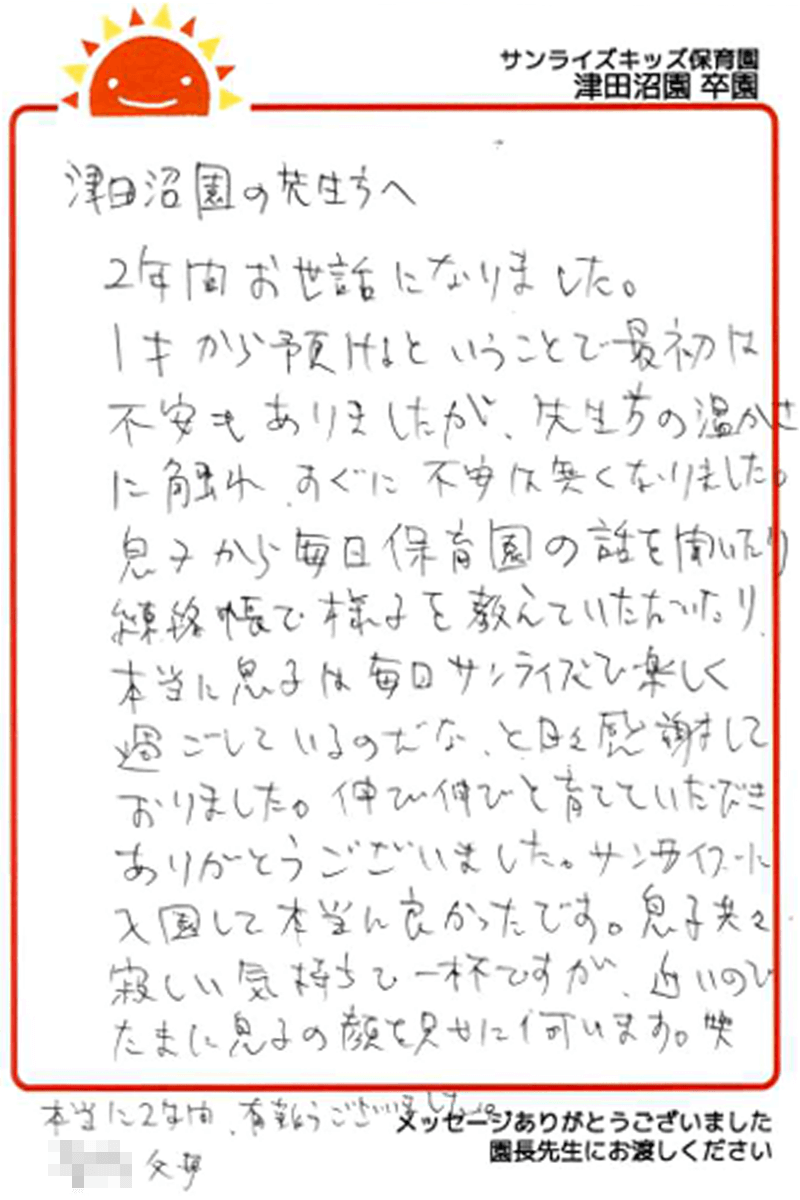 サンライズキッズ保育園
津田沼園 卒園
津田沼園の先生方へ
2年間お世話になりました。
1才から預けるということで最初は
不安もありましたが、先生方の温かさ
に触れ、すぐに不安は無くなりました。
息子から毎日保育園の話を聞いたり
連絡帳で様子を教えていただいたり、
本当に息子は毎日サンライズで楽しく
過ごしているのだな、と日々感謝して
おりました。伸び伸びと育てていただき
ありがとうございました。サンライズに
入園して本当に良かったです。息子共々
寂しい気持ちで一杯ですが、近いので
たまに息子の顔を見せに伺います。笑
本当に2年間、有難うございました。
メッセージありがとうございました
園長先生にお渡しください
父母